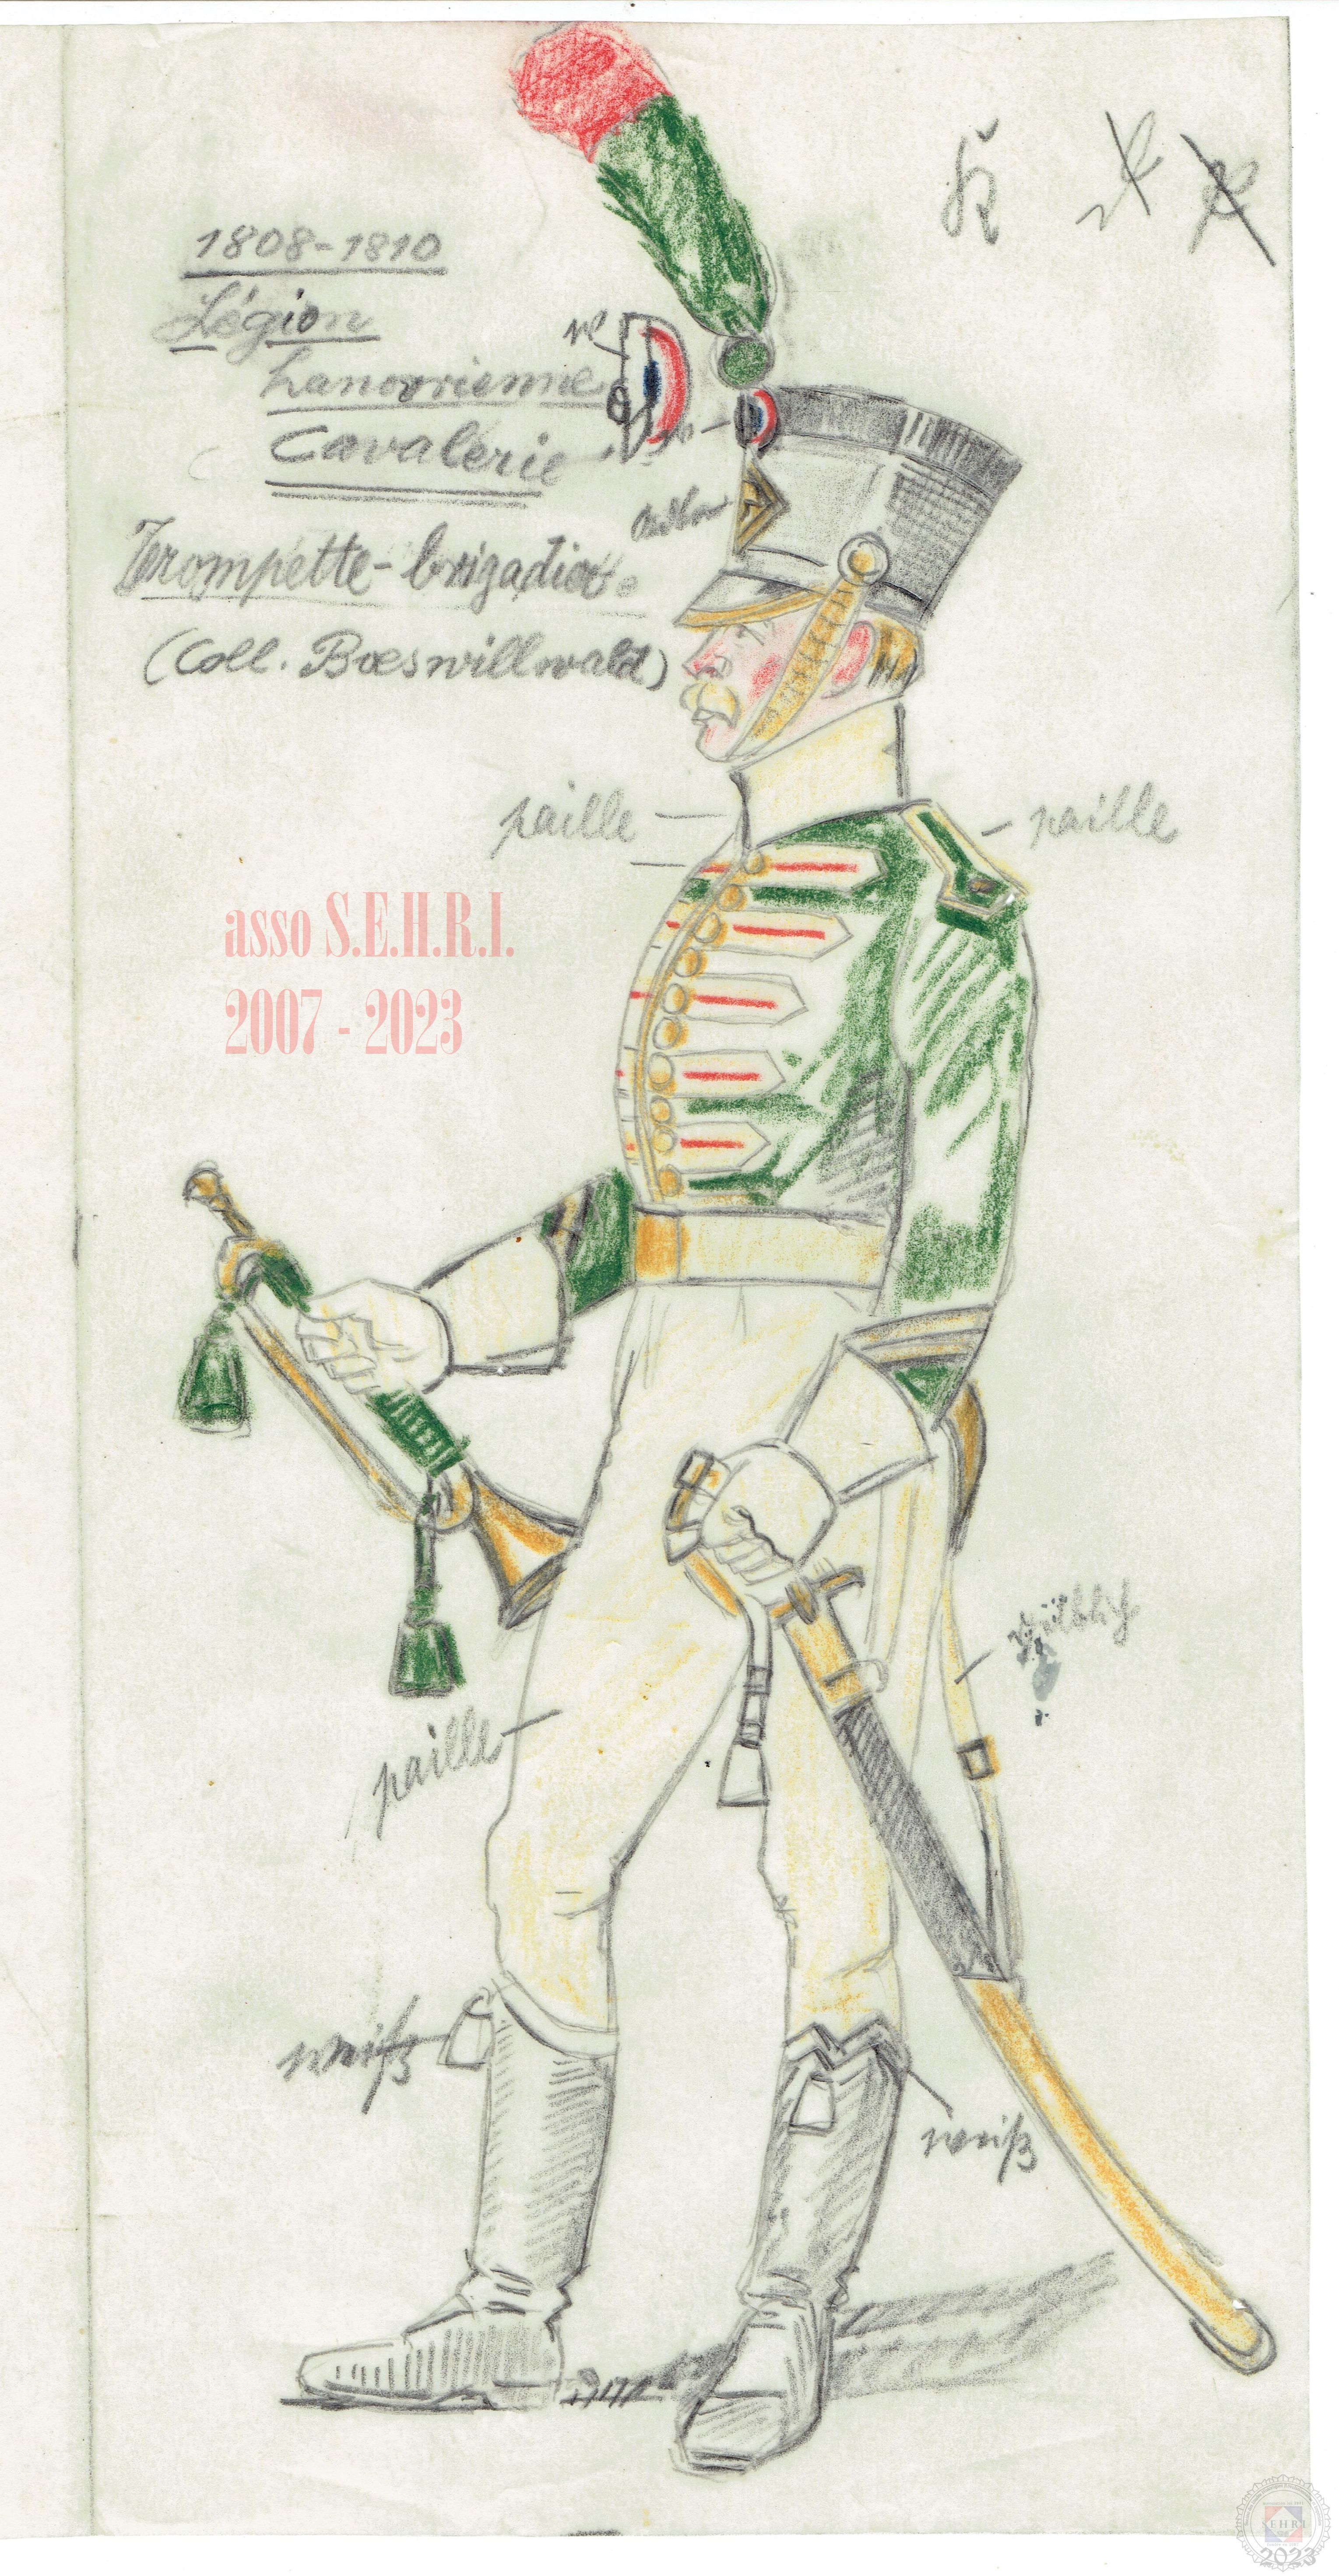 1808-1810
Légion
hanovrienne
Cavalerie
Trompette-brigadier
(Coll. Boeswillwald)
paille
paille
asso S.E.H.R.I.
2007 - 2023
gelblich
paille
weiß
weiß
SEHRI
2023